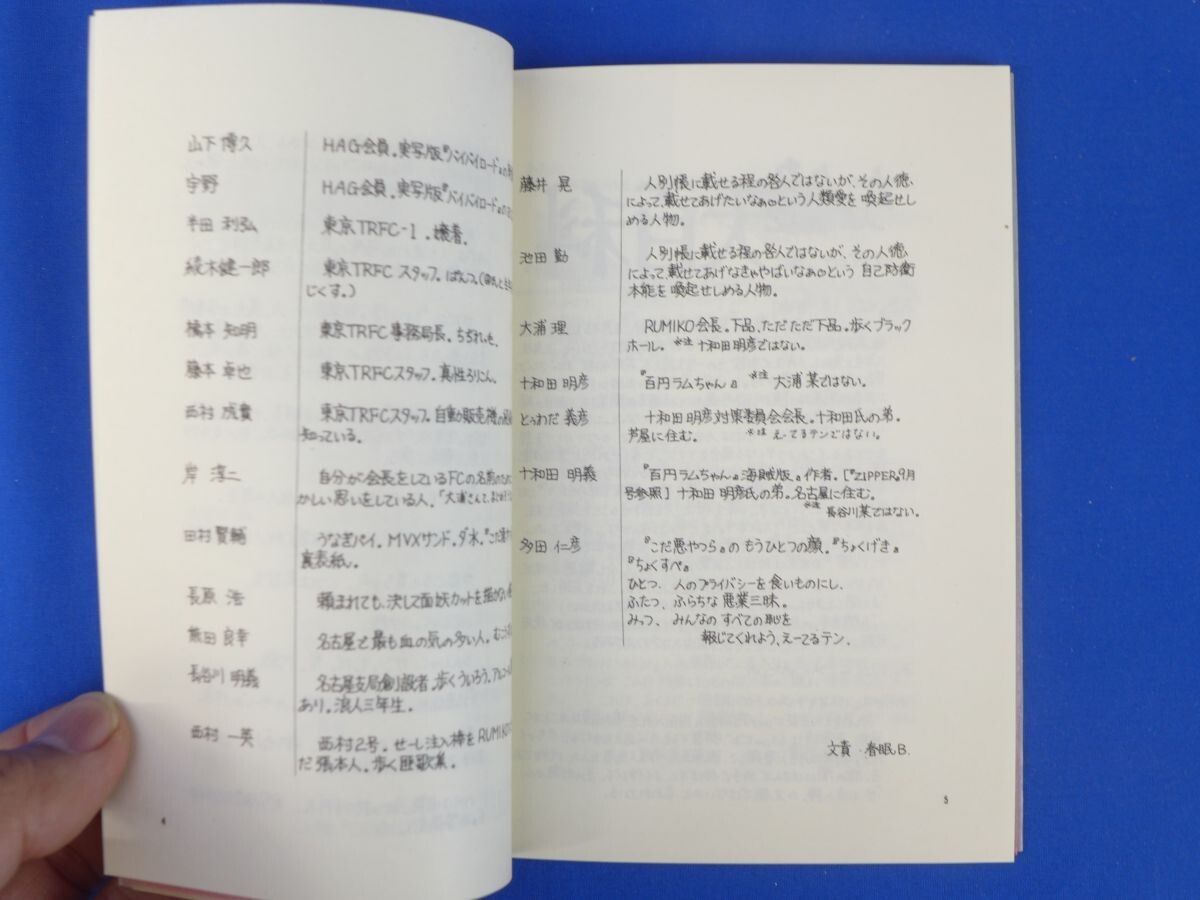 山下 博久 HAG会員。実写版『バイバイロード』の
宇野 HAG会員。実写版『バイバイロード』の
半田 利弘 東京TRFC-1。嬢者。
綾木健一郎 東京TRFC スタッフ。ぱんつ。
じくす。)
橋本 知明 東京TRFC事務局長。ちぢれっ毛。
藤本 卓也 東京TRFCスタッフ。真性ろりこん。
西村 成貴 東京TRFCスタッフ。自動販売機の
知っている。
岸 淳二 自分が会長をしているFCの名前のために
かしい思いをしている人。「大浦さんて、
田村 賢輔 うなぎパイ。MVXサンド。ダ水。
裏表紙。
長原 浩 頼まれても、決して面妖カットを描かない
熊田 良幸 名古屋で最も血の気の多い人。
長谷川 明義 名古屋支局創設者。歩くういろう。
あり。浪人三年生。
西村 一英 西村2号。せーし注入棒をRUMIKO
だ張本人。歩く匪歌集。
4
藤井 晃 人別帳に載せる程の咎人ではないが、その人徳
によって、載せてあげたいなぁ♡という人類愛を 喚起せし
める人物。
池田 勤 人別帳に載せる程の咎人ではないが、その人徳
によって、載せてあげなきゃやばいなぁ♡という 自己防衛
本能を 喚起せしめる人物。
大浦 理 RUMIKO会長。下品、ただ ただ 下品。歩く ブラック
ホール。 ※注 十和田 明彦ではない。
十和田 明彦 『百円ラムちゃん』 ※注 大浦某ではない。
とぅわだ 義彦 十和田 明彦対策委員会会長。十和田氏の弟。
芦屋に住む。 ※注 えーてるテンではない。
十和田 明義 『百円ラムちゃん』海賊版』作者。[『ZIPPER』9月
号参照] 十和田 明彦氏の弟。名古屋に住む。
※注 長谷川某ではない。
多田 仁彦 『こだ悪やつら』の もうひとつの顔。『ちょくげき』
『ちょくすぺ』
ひとつ、人のプライバシーを食いものにし、
ふたつ、ふらちな 悪業三昧。
みっつ、みんなの すべての 恥を
報じてくれよう、えーてるテン.
文責 春眠B.
5